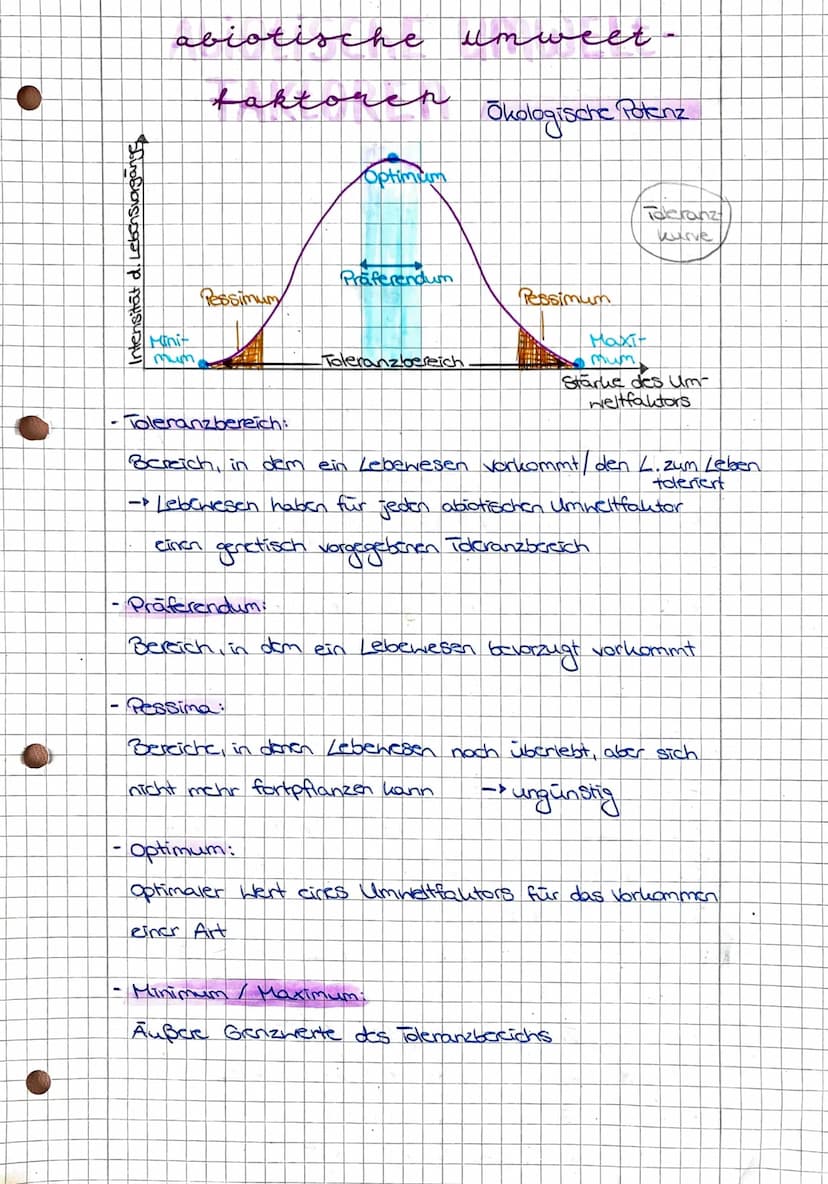 abiotische Umwelt-
faktoren
Ökologische Potenz
Intensität d. Lebensvorgänge
Optimum
Toleranz-
kurve
Präferendum
Pessimum
Pessimum
Mini-
mum
Maxi-
mum
Toleranzbereich
Stärke des Um-
weltfaktors
- Toleranzbereich:
Bereich, in dem ein Lebewesen vorkommt/den L. zum Leben
toleriert
→ Lebewesen haben für jeden abiotischen Umweltfaktor
einen genetisch vorgegebenen Toleranzbereich
- Präferendum:
Bereich, in dem ein Lebewesen bevorzugt vorkommt
- Pessima:
Bereiche, in denen Lebewesen noch überlebt, aber sich
nicht mehr fortpflanzen kann → ungünstig
- Optimum:
Optimaler Wert eines Umweltfaktors für das Vorkommen
einer Art
- Minimum / Maximum:
Äußere Grenzwerte des Toleranzbereichs